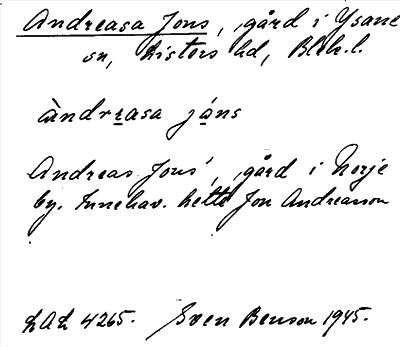 Andreasa Jons, gård i Ysane
sn, Listers hd, Blek. l.
àndrɛasa jóns
Andreas Jons', gård i Norje
by. Innehav. hette Jon Andreasson
LAL 4265. Sven Benson 1945.